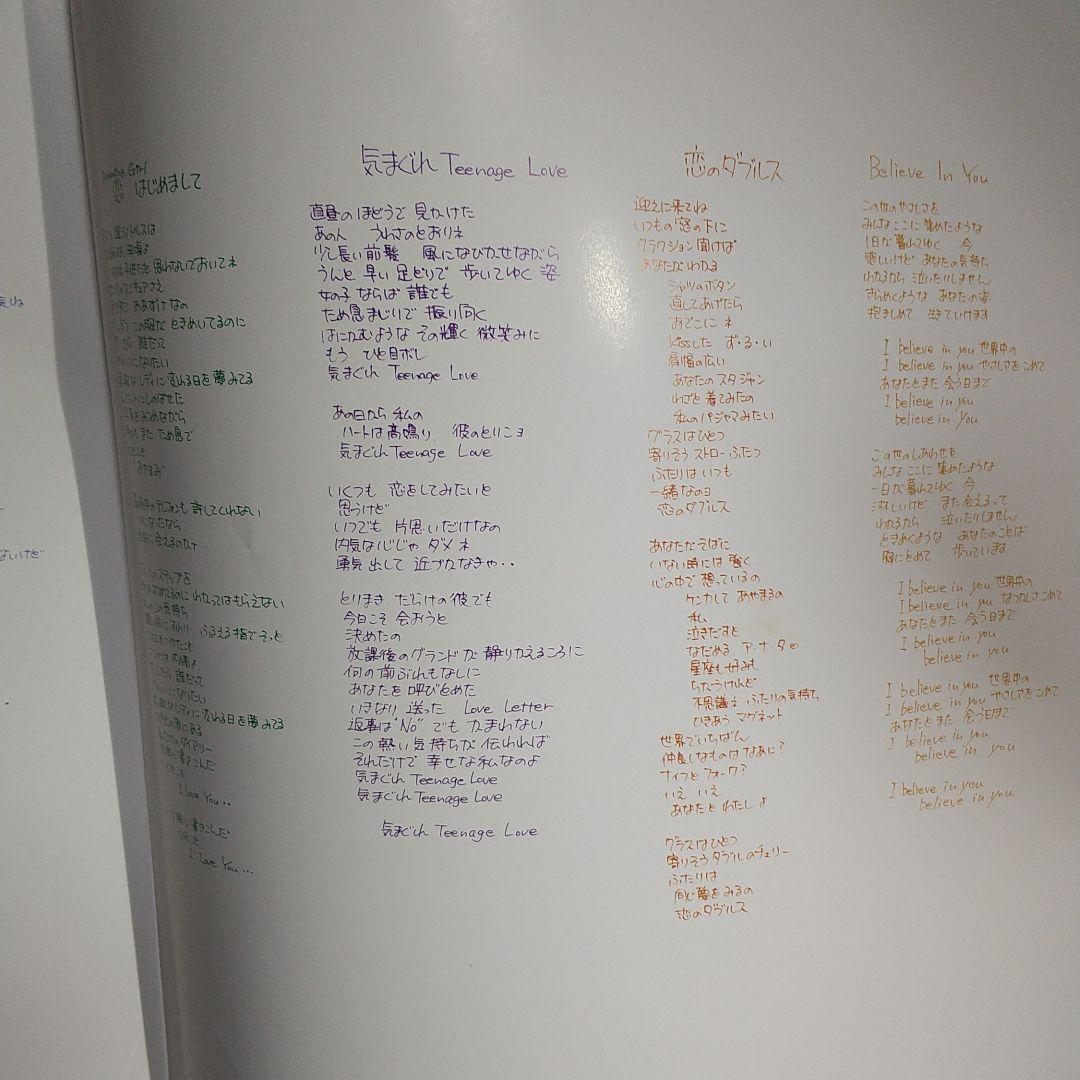 恋 はじめまして
思わないでおいてネ
おあずけなの
この胸が ときめいてるのに
誰だって
になりたい
レディに変われる日を夢みてる
しのばせた
みつめながら
また ため息で
"おやすみ"
許してくれない
になったなら
に会えるのネ・・
ステップを
わかってはもらえない
の気持ち
ふるえる指で そっと
こと
内緒よ
誰だって
になりたい
レディに変われる日を夢みてる
にある
ダイアリー
書きこんだ
I Love You・・
書きこんだ
I Love You…
気まぐれ Teenage Love
直昼のほどうで 見かけた
あの人 うわさのとおりネ
少し長い前髪 風になびかせながら
うんと 早い 足どりで 歩いてゆく 姿
女の子 ならば 誰でも
ため息まじりで 振り向く
はにかむような その輝く 微笑みに
もう ひと目ボレ
気まぐれ Teenage Love
あの日から 私の
ハートは高鳴り 彼のとりこョ
気まぐれ Teenage Love
いくつも 恋をしてみたいと
思うけど
いつでも 片思いだけなの
内気な心じゃ ダメネ
勇気 出して 近づかなきゃ・・
とりまき だらけの彼でも
今日こそ 会おうと
決めたの
放課後のグランドが 静りかえるころに
何の前ぶれもなしに
あなたを 呼びとめた
いきなり 送った Love Letter
返事は"No"でも かまわない
この熱い気持ちが 伝われば
それだけで 幸せな私なのよ
気まぐれ Teenage Love
気まぐれ Teenage Love
気まぐれ Teenage Love
恋のダブルス
迎えに来てね
いつもの 窓の下に
クラクション聞けば
あなたがわかる
シャツのボタン
直してあげたら
おでこに ネ
kissした ず・る・い
肩幅の広い
あなたの スタジャン
わざと 着てみたの
私のパジャマみたい
グラスはひとつ
寄りそう ストロー ふたつ
ふたりは いつも
一緒なのョ
恋のダブルス
あなたがそばに
いない時には 驚く
心の中で 想っているの
ケンカして あやまるの
私
泣きだすと
なだめる ア・ナ・タ
星座も好みも
ちがうけれど
不思議ネ ふたりの気持ち
ひきあう マグネット
世界でいちばん
仲良しなものは なあに？
ナイフとフォーク？
いえ いえ
あなたと わたしよ
グラスはひとつ
寄りそう ダブルのチェリー
ふたりは
同じ夢をみるの
恋のダブルス
Believe In You
この世のやさしさを
みんな ここに 集めたような
1日が 暮れてゆく 今
悲しいけど あなたの気持ち
わかるから 泣いたりしません
きらめくような あなたの姿
抱きしめて 生きていけます
I believe in you 世界中の
I believe in you やさしさをこめて
あなたとまた 会う日まで
I believe in you
believe in you
この世のしあわせを
みんな ここに 集めたような
一日が 暮れてゆく 今
淋しいけど また会えるって
わかるから 泣いたりしません
ときめくような あなたのことば
胸にとめて 歩いています
I believe in you 世界中の
I believe in you なつかしさこめて
あなたとまた 会う日まで
I believe in you
believe in you
I believe in you 世界中の
I believe in you やさしさをこめて
あなたとまた 会う日まで
I believe in you
believe in you
I believe in you
believe in you